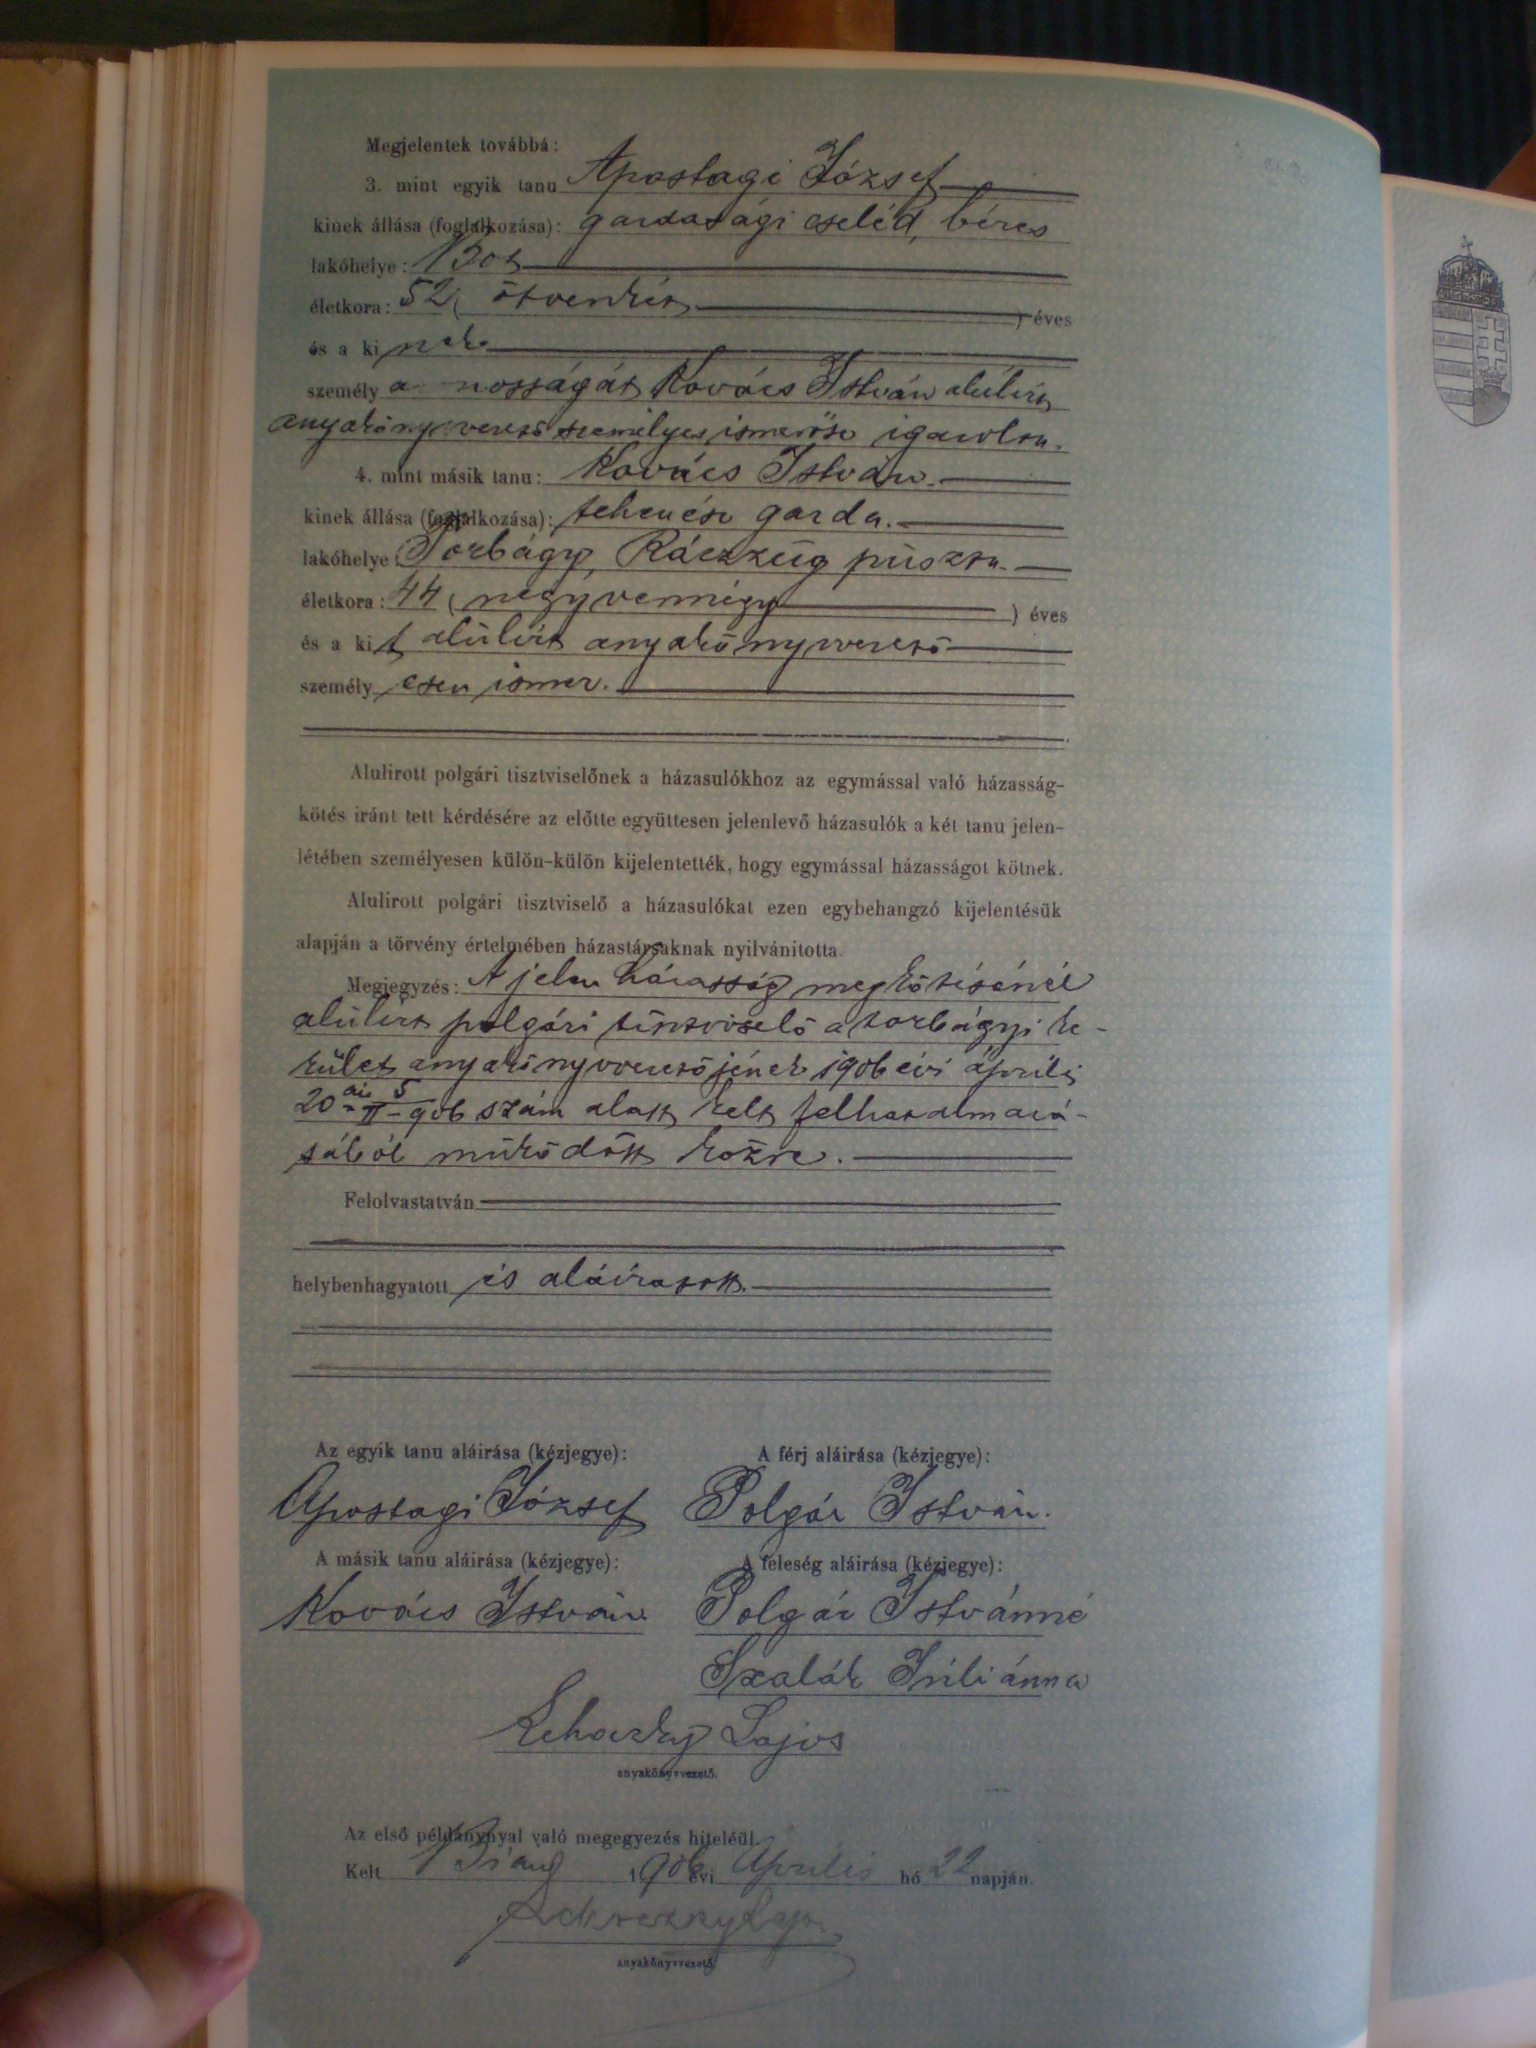 Megjelentek továbbá:
3. mint egyik tanu Apostagi József
kinek állása (foglalkozása): gardasági cseléd, béres
lakóhelye:
életkora: 52 ( ötvenkét ) éves
és a ki nek
személy a nosságát Kovács István alúlírt
anyakönyvvezető személyes ismerőse igazolta.
4. mint másik tanu: Kovács István.
kinek állása (foglalkozása): tehenész gazda.
lakóhelye: Torbágy, Ráczzúg puszta.
életkora: 44 ( negyvennégy ) éves
és a ki t alúlírt anyakönyvvezető
személy esen ismer.
Alulirott polgári tisztviselőnek a házasulókhoz az egymással való házasság-
kötés iránt tett kérdésére az előtte együttesen jelenlevő házasulók a két tanu jelen-
létében személyesen külön-külön kijelentették, hogy egymással házasságot kötnek.
Alulirott polgári tisztviselő a házasulókat ezen egybehangzó kijelentésük
alapján a törvény értelmében házastársaknak nyilvánitotta.
Megjegyzés: A jelen házasság megkötésénél
alúlírt polgári tisztviselő a torbágyi ke-
rület anyakönyvvezetőjének 1906 évi április
20 ai 5/II-906 szám alatt kelt felhatalmazá-
sából működött közre.
Felolvastatván
helybenhagyatott és aláíratott.
Az egyik tanu aláirása (kézjegye): A férj aláirása (kézjegye):
Apostagi József Polgár István.
A másik tanu aláirása (kézjegye): A feleség aláirása (kézjegye):
Kovács István Polgár Istvánné
Szalák Juliánna
Lajos
anyakönyvvezető.
Az első példánynyal való megegyezés hiteléül
Kelt Bián 1906 évi Április hó 22 napján.
anyakönyvvezető.